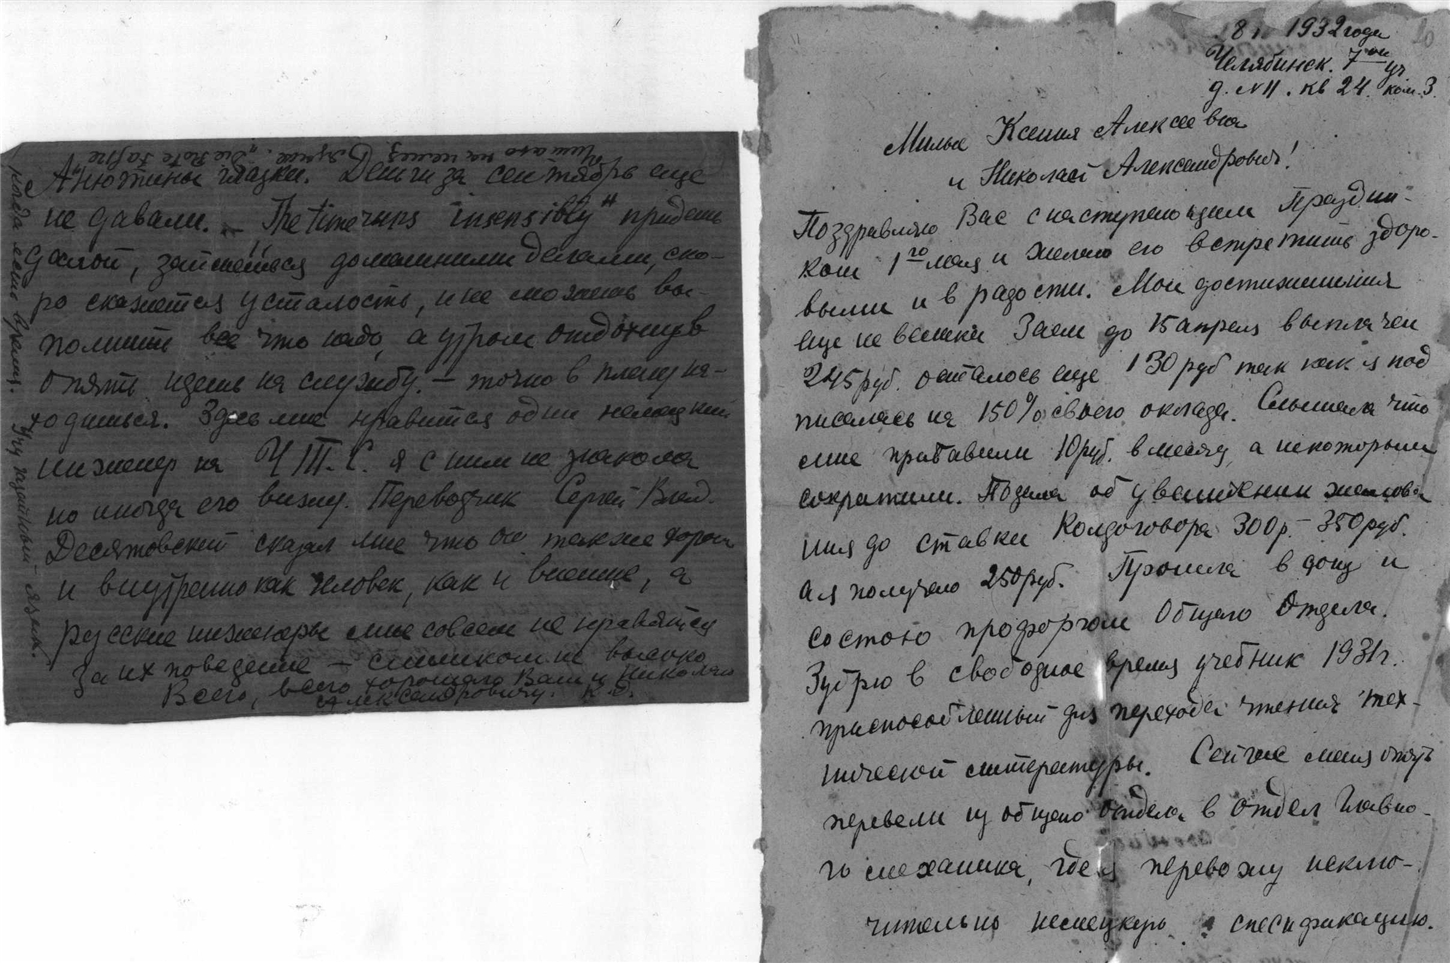 Читаю на немец. языке. "Die Rote Fahne
Анютины глазки. Деньги за сентябрь еще
не давали. – The time runs "insensibly" придешь
домой, займешься домашними делами, ско-
ро скажется усталость, и не можешь вы-
полнить все что надо, а утром отдохнув
опять идешь на службу. – точно в плену на-
ходишься. Здесь мне нравится один немецкий
инженер на ЧТ.С. я с ним не знакома
но иногда его вижу. Переводчик Сергей Влад.
Десятовский сказал мне что он также хорош
и внутренно как человек, как и внешне, а
русские инженеры мне совсем не нравятся
за их поведение – слишком не высоко
Всего, всего хорошего Вам и Николаю
Александровичу. К.
когда мало времени. Учу казачный язык.
8 1932 года
Челябинск. 7ой уч.
д. N 11. кв 24. ком. 3.
Милые Ксения Алексеевна
и Николай Александрович!
Поздравляю Вас с наступающим Праздни-
ком 1го мая и желаю его встретить здоро-
выми и в радости. Мои достижения
еще не велики Заем до 15 апреля выплачен
245 руб. осталось еще 130 руб так как я под
писалась на 150% своего оклада. Слышала что
мне прибавили 10 руб. в месяц, а некоторым
сократили. Подала об увеличении жалова
ния до ставки Колдоговора 300 р – 350 руб.
а я получаю 250 руб. Прошла в доц и
состою профоргом Общего Отдела.
Зубрю в свободное время учебник 1931 г.
приспособленный для перехода чтения тех-
нической литературы. Сейчас меня опять
перевели из общего отдела в отдел Главно-
го механика, где я перевожу исклю-
чительно немецкую спесификацию.